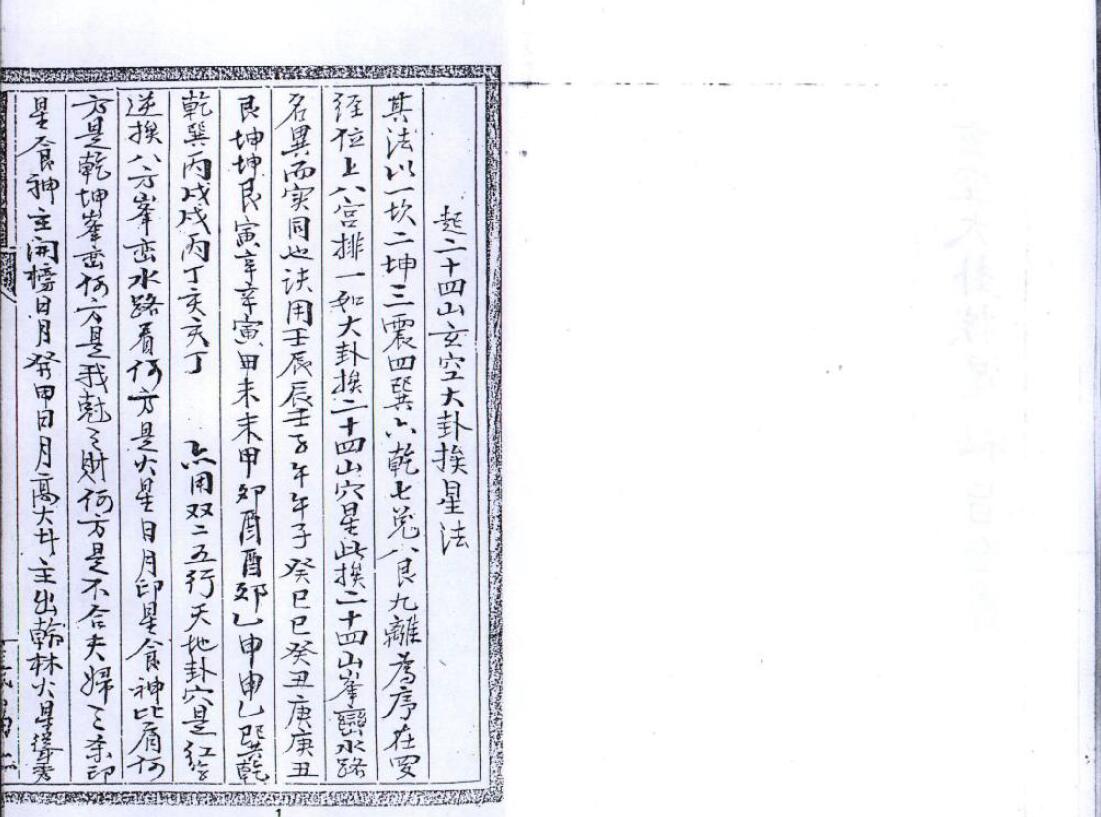 起二十四山玄空大卦挨星法
其法以一坎二坤三震四巽六乾七兑八艮九離為序在
经位上八宫排一如大卦挨二十四山穴星此挨二十四山峯巒水路
名異而实同也诀用壬辰辰壬子午午子癸巳巳癸丑庚庚丑
艮坤坤艮寅辛辛寅甲未未甲卯酉酉卯乙申申乙巽乾
乾巽丙戌戌丙丁亥亥丁 点用双二五行天地卦穴是红
逆挨八方峯峦水路看何方是火星日月印星食神比肩何
方是乾坤峯峦何方是我尅之財何方是不合夫婦三杀印
星食神主開榜日月癸甲日月高大斗主出翰林火星秀
1